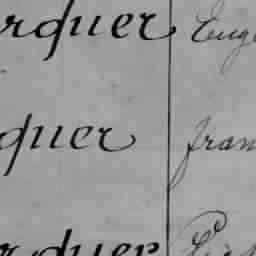 rquer Eug
quer fran
rquer